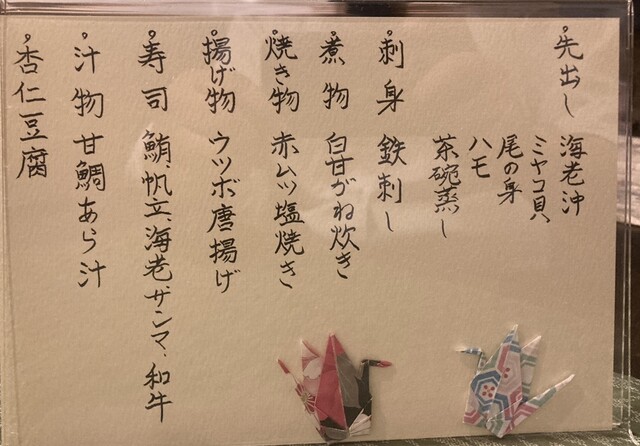 °先出し 海老沖
ミヤコ貝
尾の身
ハモ
茶碗蒸し
°刺身 鉄刺し
°煮物 白甘がね炊き
°焼き物 赤ムツ塩焼き
°揚げ物 ウツボ唐揚げ
°寿司 鮪、帆立、海老、サンマ、和牛
°汁物 甘鯛あら汁
°杏仁豆腐